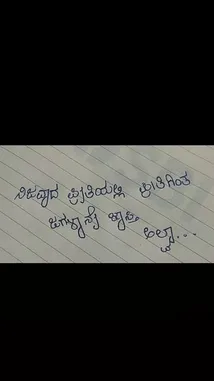 ನಿಜವಾದ ಪ್ರೀತಿಯಲ್ಲಿ ಪ್ರೀತಿಗಿಂತ
ಜಗಳಾನೇ ಜಾಸ್ತಿ
ಅಲ್ವಾ...